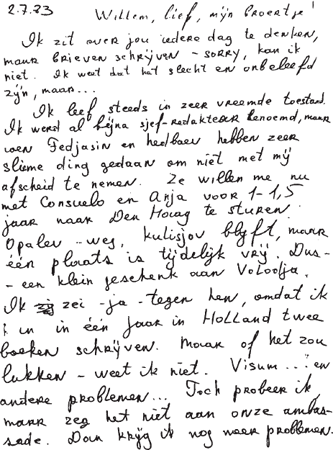 2.7.93 Willem, lief, mijn broertje!
Ik zit over jou iedere dag te denken,
maar brieven schrijven - sorry, kan ik
niet. Ik weet dat het slecht en onbeleefd
zijn, maar...
Ik leef steeds in zeer vreemde toestand.
Ik werd al bijna sjef-redakteur benoemd, maar
toen Fedjasin en heelbaen hebben zeer
slieme ding gedaan om niet met mij
afscheid te nemen. Ze willen me nu
met Consuelo en Anja voor 1-1,5
jaar naar Den Haag te sturen.
Opalev - weg, kulisjov blyft, maar
één plaats is tijdelijk vrij. Dus -
- een klein geschenk aan Voloolja.
Ik zei - ja - tegen hen, omdat ik
kun in één jaar in Holland twee
boeken schrijven. Maar of het zou
lukken - weet ik niet. Visum... en
andere problemen... Toch probeer ik,
maar zeg het niet aan onze ambas-
sade. Dan krijg ik nog meer problemen.